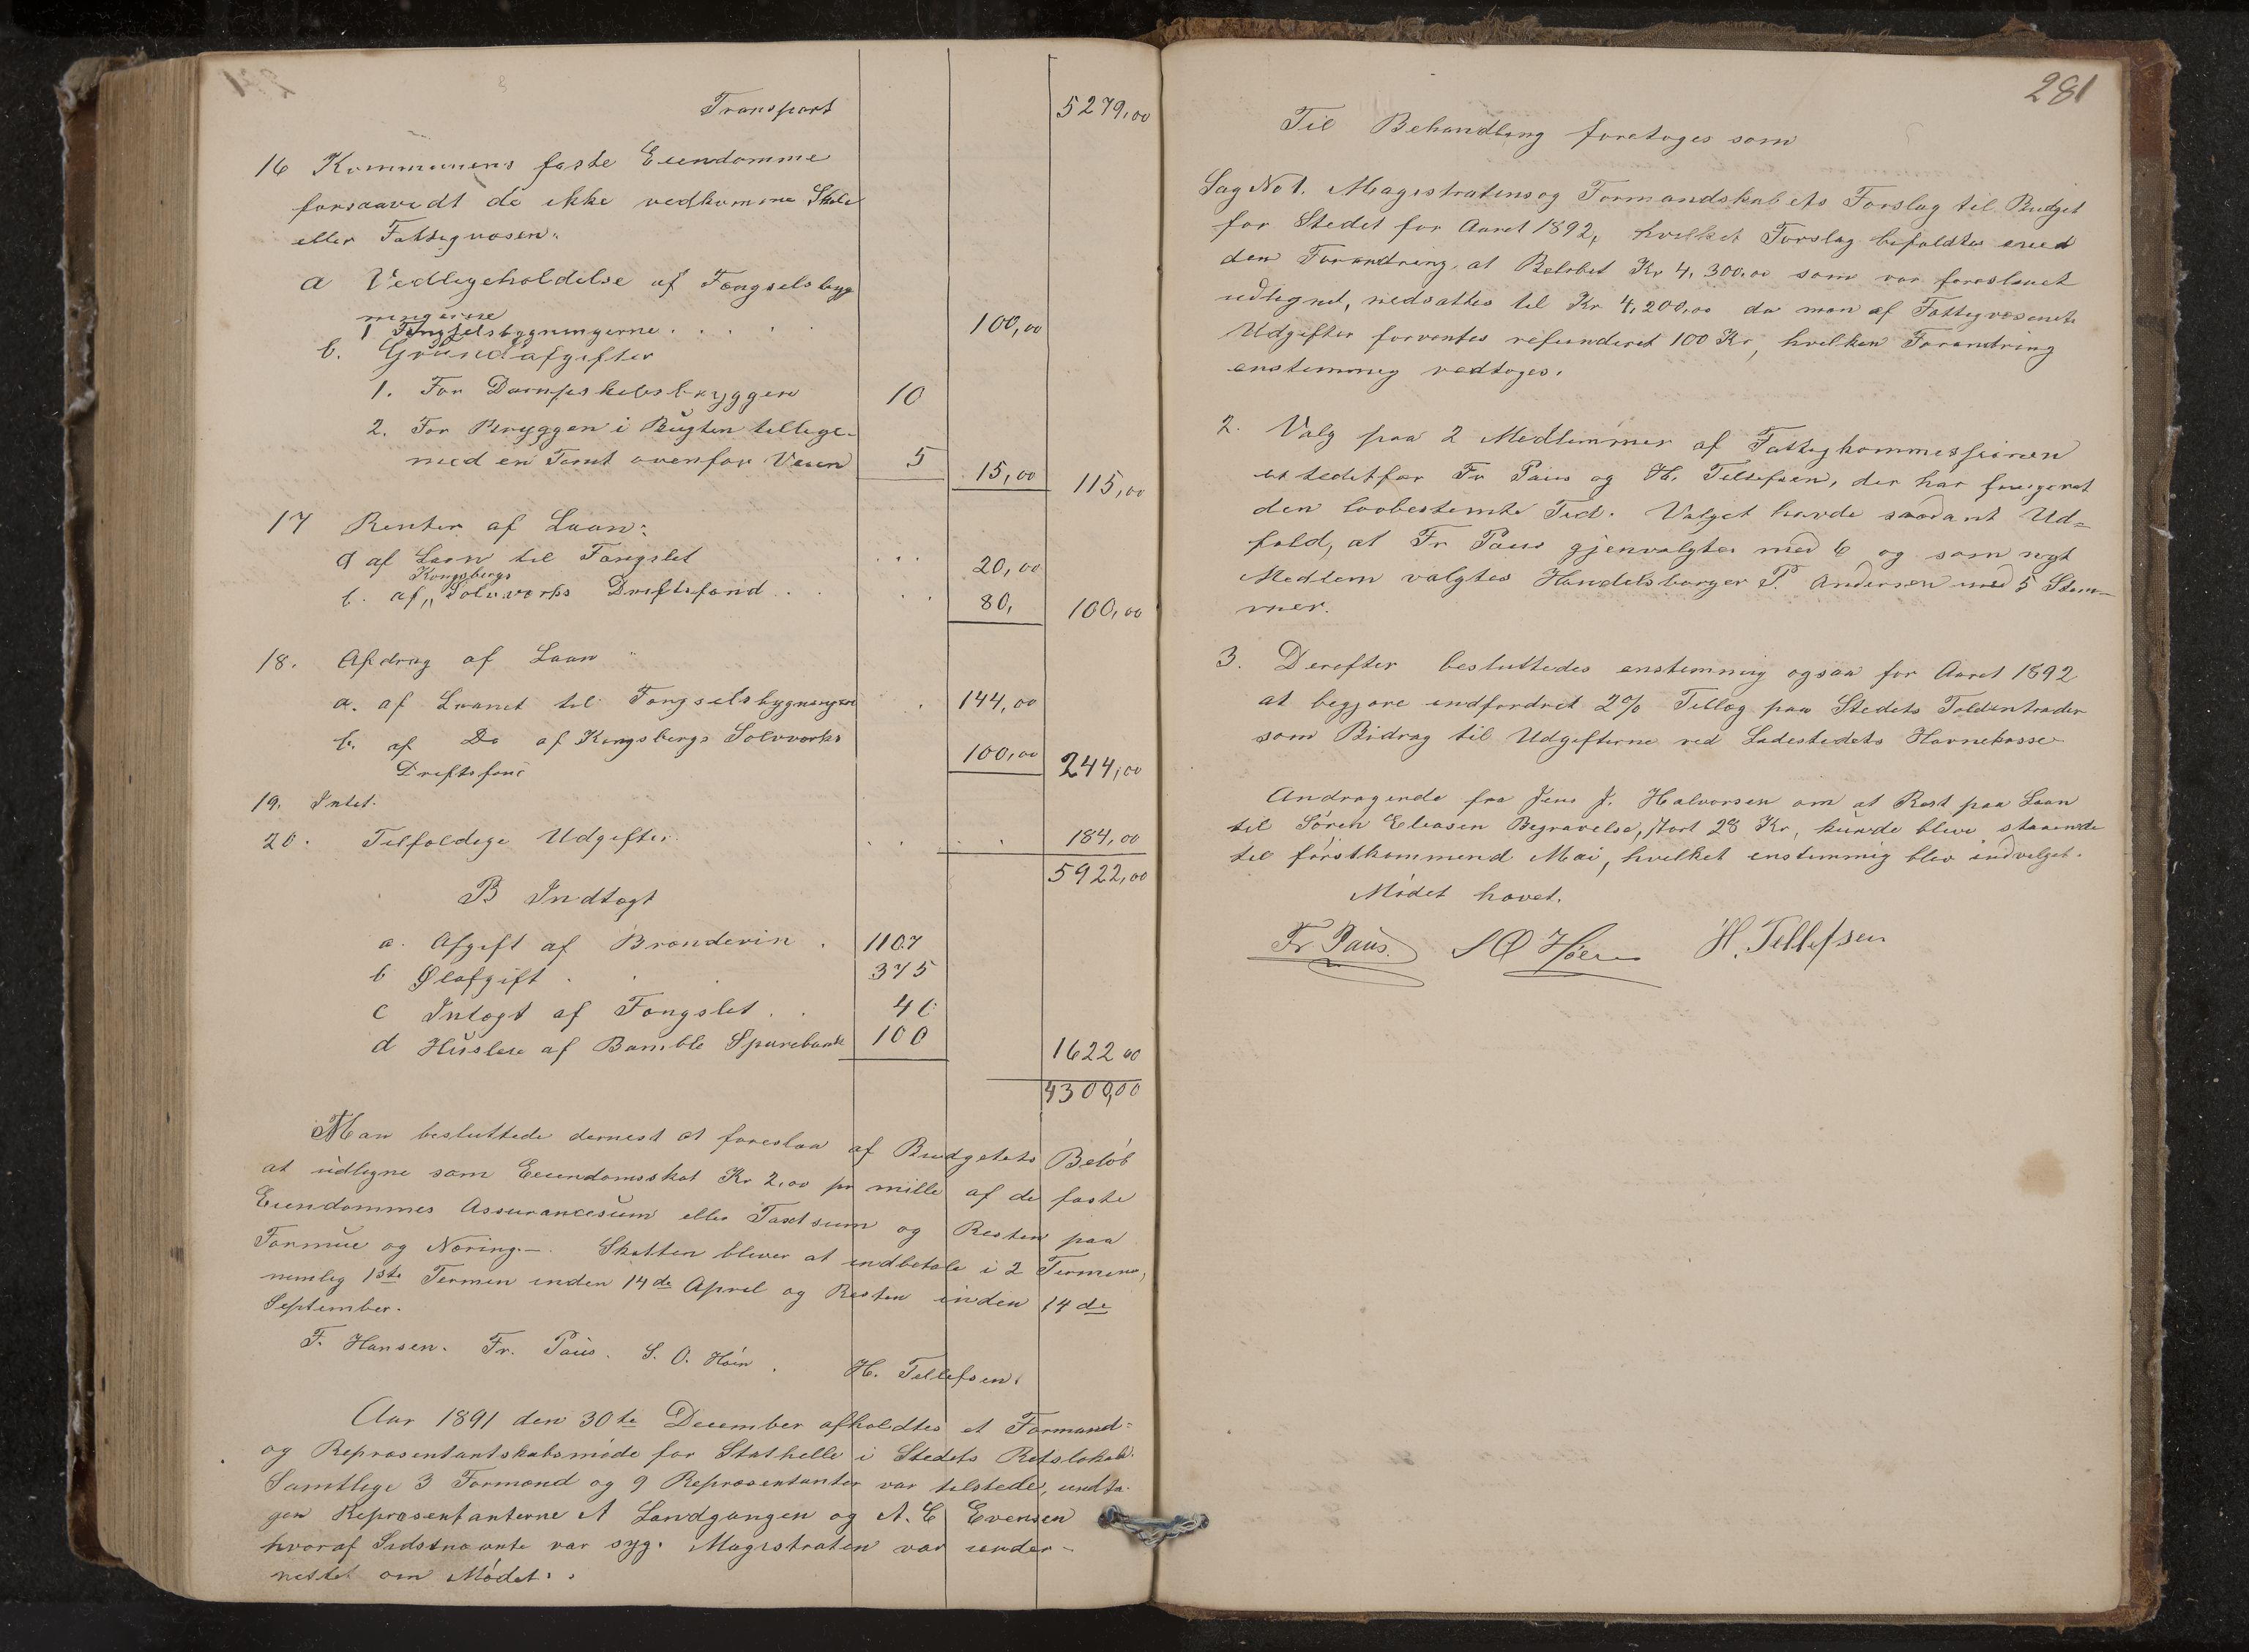 Transport 5279,00
16 Kommunens faste Eiendomme
forsaavidt de ikke vedkomme Skole
eller Fattigvæsen:
a Vedligeholdelse af Fængselsbyg
ningerne
1 Fængselsbygningerne . . . . . 100,00
b. Grundafgifter
1. For Dampskibsbryggen 10
2. For Bryggen i Bugten tillige-
med en Tomt ovenfor Veien 5 15,00 115,00
17 Renter af Laan:
a af Laan til Fængslet . . 20,00
Kongsbergs
b. af „ Sølvværks Driftsfond . . . . 80, 100,00
18. Afdrag af Laan
a. af Laanet til Fængselsbygningen . 144,00
b. af Do af Kongsbergs Sølvværks
Driftsfond 100,00 244,00
19. Intet.
20. Tilfældige Udgifter . . . . 184,00
5922,00
B Indtægt
a. Afgift af Brændevin . 1107
b Ølafgift . . . 375
c Indtægt af Fængslet . . 40
d Husleie af Bamble Sparebank 100 1622 00
4300,00
Man besluttede dernest at foreslaa af Budgetets Beløb
at udligne som Eiendomsskat Kr 2,00 pr mille af de faste
Eiendommes Assurancesum eller Taxtsum og Resten paa
Formue og Næring. Skatten bliver at indbetale i 2 Terminer,
nemlig 1ste Termin inden 14de April og Resten inden 14de
September.
F. Hansen. Fr. Paus. S. O. Höen. H. Tellefsen.
Aar 1891 den 30te December afholdtes et Formand-
og Repræsentantskabsmøde for Stathelle i Stedets Retslokale.
Samtlige 3 Formænd og 9 Repræsentanter var tilstede, undta-
gen Repræsentanterne A Landgangen og A. E Evensen
hvoraf Sidstnævnte var syg. Magistraten var under-
rettet om Mødet.
281
Til Behandling foretoges som
Sag No 1. Magistratens og Formandskabets Forslag til Budget
for Stedet for Aaret 1892, hvilket Forslag bifaldtes med
den Forandring, at Beløbet Kr 4,300,00 som var foreslaaet
udlignet, nedsattes til Kr 4,200,00 da man af Fattigvæsenets
Udgifter forventes refunderet 100 Kr, hvilken Forandring
enstemmig vedtoges.
2. Valg paa 2 Medlemmer af Fattigkommissionen
istedetfor Fr Paus og H. Tellefsen, der har fungeret
den lovbestemte Tid. Valget havde saadant Ud-
fald, at Fr Paus gjenvalgtes med 6 og som nyt
Medlem valgtes Handelsborger P. Andersen med 5 Stem-
mer.
3. Derefter besluttedes enstemmig ogsaa for Aaret 1892
at begjære indfordret 2% Tillæg paa Stedets Toldintrader
som Bidrag til Udgifterne ved Ladestedets Havnekasse
Andragende fra Jens J. Halvorsen om at Rest paa Laan
til Sören Eliasen Begravelse, stort 28 Kr, kunde blive staaende
til förstkommend Mai, hvilket enstemmig blev indvilget.
Mödet hævet.
Fr. Paus. S O Höen H. Tellefsen